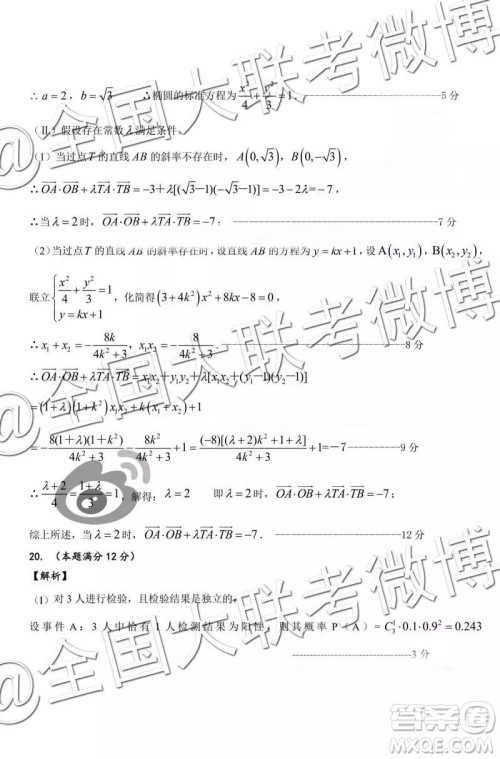 ∴ a = 2，b = √3　∴椭圆的标准方程为 x²/4 + y²/3 = 1， ---------- 5 分
（Ⅱ）假设存在常数 λ 满足条件.
（1）当过点 T 的直线 AB 的斜率不存在时，A(0, √3)，B(0, −√3)，
∴ OA·OB + λTA·TB = −3 + λ[(√3−1)(−√3−1)] = −3 − 2λ = −7，
∴当 λ = 2 时，OA·OB + λTA·TB = −7； ---------- 7 分
（2）当过点 T 的直线 AB 的斜率存在时，设直线 AB 的方程为 y = kx + 1，设 A(x₁, y₁)，B(x₂, y₂)，
联立 { x²/4 + y²/3 = 1, y = kx + 1 ，化简得 (3 + 4k²)x² + 8kx − 8 = 0，
∴ x₁ + x₂ = −8k/(4k² + 3)，x₁x₂ = −8/(4k² + 3). ---------- 8 分
∴ OA·OB + λTA·TB = x₁x₂ + y₁y₂ + λ[x₁x₂ + (y₁ −1)(y₂ −1)]
= (1 + λ)(1 + k²)x₁x₂ + k(x₁ + x₂) + 1
= −8(1 + λ)(1 + k²)/(4k² + 3) − 8k²/(4k² + 3) + 1 = (−8)[(λ + 2)k² + 1 + λ]/(4k² + 3) + 1 = −7 ---------- 9 分
∴ (λ + 2)/4 = (1 + λ)/3 = 1，解得：λ = 2　即 λ = 2 时，OA·OB + λTA·TB = −7；
综上所述，当 λ = 2 时，OA·OB + λTA·TB = −7． ---------- 12 分
20. （本题满分 12 分）
【解析】
（I）对 3 人进行检验，且检验结果是独立的，
设事件 A：3 人中恰有 1 人检测结果为阳性，则其概率 P（A）= C₃¹·0.1·0.9² = 0.243
---------- 3 分
@全国大联考微博
@全国大联考微博
@全国大联考微博
答案圈
MXQE.COM